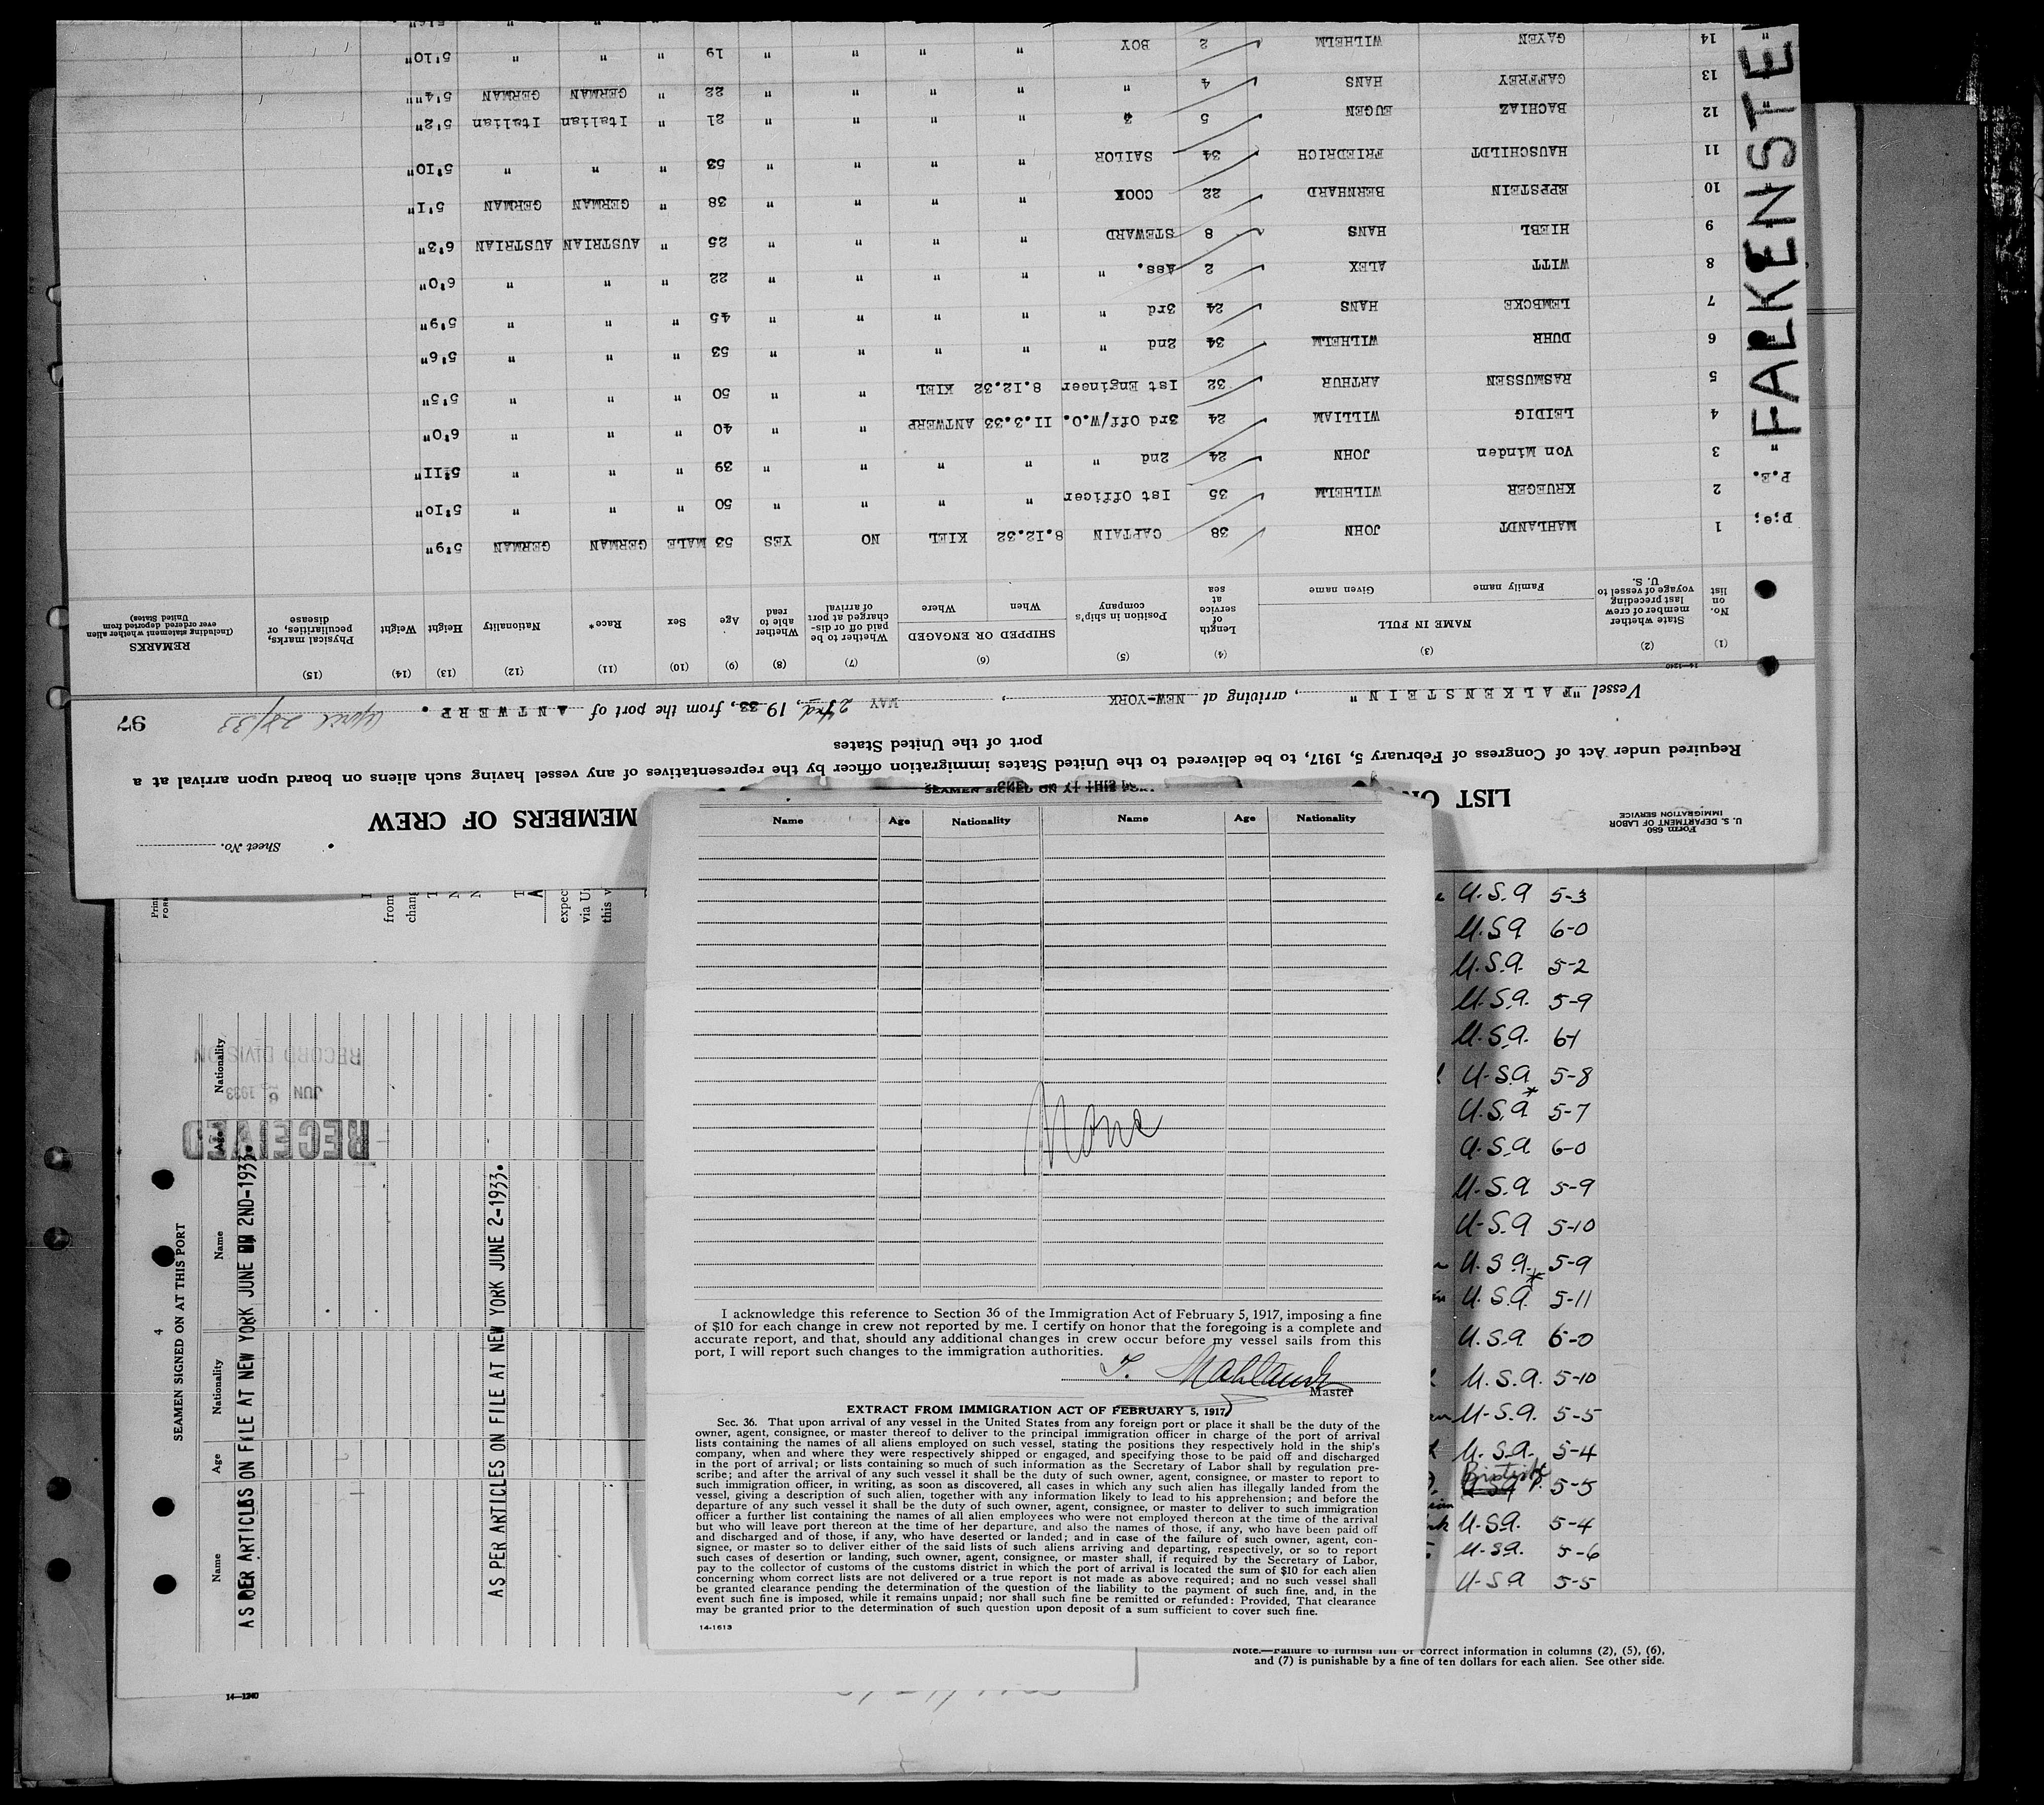 Form 680
U. S. DEPARTMENT OF LABOR
IMMIGRATION SERVICE
Sheet No.
LIST O MEMBERS OF CREW
Required under Act of Congress of February 5, 1917, to be delivered to the United States immigration officer by the representatives of any vessel having such aliens on board upon arrival at a
port of the United States
Vessel "FALKENSTEIN", arriving at NEW-YORK, MAY 23rd, 1933, from the port of ANTWERP.
April 28/33
97
14-1240
(1) (2) (3) (4) (5) (6) (7) (8) (9) (10) (11) (12) (13) (14) (15)
No. on list
State whether member of crew last preceding voyage of vessel to U. S.
NAME IN FULL
Family name Given name
Length of service at sea
Position in ship's company
SHIPPED OR ENGAGED
When Where
Whether to be paid off or discharged at port of arrival
Whether able to read
Age
Sex
Race*
Nationality
Height
Weight
Physical marks, peculiarities, or disease
REMARKS
(Including statement whether alien ever ordered deported from United States)
p;e; 1 MAHLANDT JOHN 38 CAPTAIN 8.12.32 KIEL NO YES 53 MALE GERMAN GERMAN 5'9"
P.E. 2 KRUEGER WILHELM 35 1st Officer " " " " 50 " " " 5'10"
" 3 Von Minden JOHN 24 2nd " " " " " 39 " " " 5'11"
4 LEIDIG WILLIAM 24 3rd Off/W.O. 11.3.33 ANTWERP " " 40 " " " 6'0"
5 RASMUSSEN ARTHUR 32 1st Engineer 8.12.32 KIEL " " 50 " " " 5'5"
6 DUHR WILHELM 34 2nd " " " " " 53 " " " 5'6"
7 LEMBCKE HANS 24 3rd " " " " " 45 " " " 5'9"
8 WITT ALEX 2 Ass. " " " " " 22 " " " 6'0"
9 HIEBL HANS 8 STEWARD " " " " 25 " AUSTRIAN AUSTRIAN 6'3"
10 EPPSTEIN BERNHARD 22 COOK " " " " 38 " GERMAN GERMAN 5'1"
11 HAUSCHILDT FRIEDRICH 34 SAILOR " " " " 53 " " " 5'10"
12 BACHIAZ EUGEN 5 " " " " " 21 " Italian Italian 5'2"
13 GAFFREY HANS 4 " " " " " 22 " GERMAN GERMAN 5'4"
14 GAYEN WILHELM 2 BOY " " " " 19 " " " 5'10"
FALKENSTE
Name Age Nationality Name Age Nationality
None
I acknowledge this reference to Section 36 of the Immigration Act of February 5, 1917, imposing a fine
of $10 for each change in crew not reported by me. I certify on honor that the foregoing is a complete and
accurate report, and that, should any additional changes in crew occur before my vessel sails from this
port, I will report such changes to the immigration authorities.
J. Mahlandt
Master
EXTRACT FROM IMMIGRATION ACT OF FEBRUARY 5, 1917
Sec. 36. That upon arrival of any vessel in the United States from any foreign port or place it shall be the duty of the
owner, agent, consignee, or master thereof to deliver to the principal immigration officer in charge of the port of arrival
lists containing the names of all aliens employed on such vessel, stating the positions they respectively hold in the ship's
company, when and where they were respectively shipped or engaged, and specifying those to be paid off and discharged
in the port of arrival; or lists containing so much of such information as the Secretary of Labor shall by regulation pre-
scribe; and after the arrival of any such vessel it shall be the duty of such owner, agent, consignee, or master to report to
such immigration officer, in writing, as soon as discovered, all cases in which any such alien has illegally landed from the
vessel, giving a description of such alien, together with any information likely to lead to his apprehension; and before the
departure of any such vessel it shall be the duty of such owner, agent, consignee, or master to deliver to such immigration
officer a further list containing the names of all alien employees who were not employed thereon at the time of the arrival
but who will leave port thereon at the time of her departure, and also the names of those, if any, who have been paid off
and discharged and of those, if any, who have deserted or landed; and in case of the failure of such owner, agent, con-
signee, or master so to deliver either of the said lists of such aliens arriving and departing, respectively, or so to report
such cases of desertion or landing, such owner, agent, consignee, or master shall, if required by the Secretary of Labor,
pay to the collector of customs of the customs district in which the port of arrival is located the sum of $10 for each alien
concerning whom correct lists are not delivered or a true report is not made as above required; and no such vessel shall
be granted clearance pending the determination of the question of the liability to the payment of such fine, and, in the
event such fine is imposed, while it remains unpaid; nor shall such fine be remitted or refunded: Provided, That clearance
may be granted prior to the determination of such question upon deposit of a sum sufficient to cover such fine.
14-1613
4
SEAMEN SIGNED ON AT THIS PORT
Name Age Nationality Name Age Nationality
AS PER ARTICLES ON FILE AT NEW YORK JUNE 2ND-1933.
AS PER ARTICLES ON FILE AT NEW YORK JUNE 2-1933.
RECEIVED
JUN 6 1933
RECORD DIVISION
from
chang
expec
via U
this v
14-1240
U.S.A 5-3
U.S.A 6-0
U.S.A. 5-2
U.S.A. 5-9
U.S.A. 6-1
U.S.A 5-8
U.S.A 5-7
U.S.A 6-0
U.S.A 5-9
U.S.A 5-10
U.S.A. 5-9
U.S.A. 5-11
U.S.A 6-0
U.S.A. 5-10
U.S.A. 5-5
U.S.A. 5-4
British 5-5
U.S.A. 5-4
U.S.A. 5-6
U.S.A 5-5
Note.—Failure to furnish full or correct information in columns (2), (5), (6),
and (7) is punishable by a fine of ten dollars for each alien. See other side.